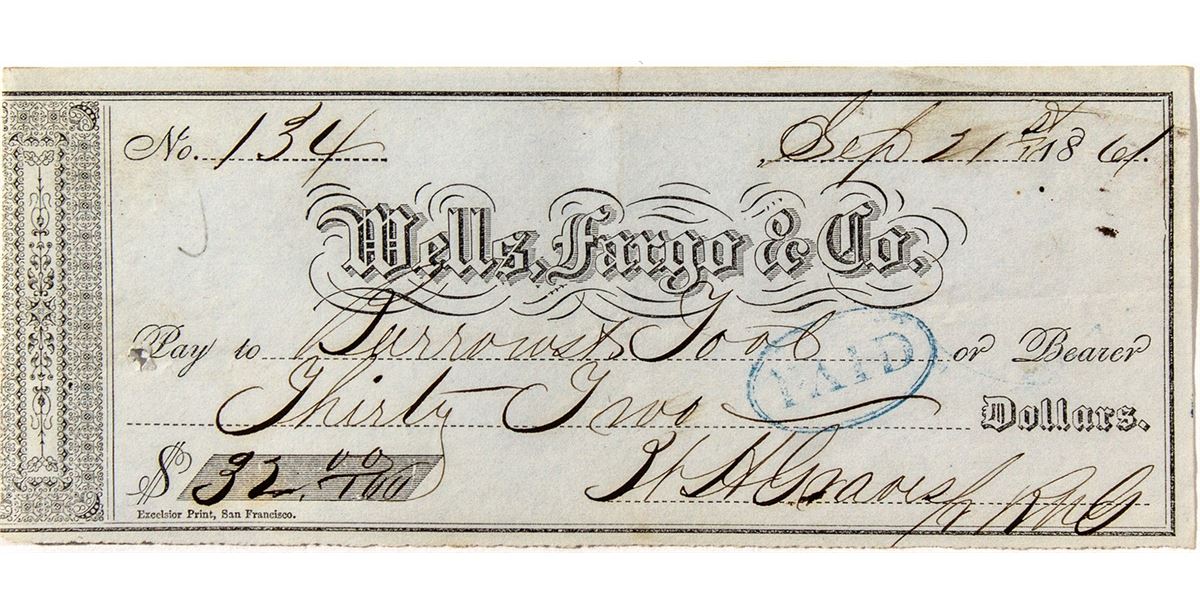 No. 134
Sep 21st 1861.
Wells, Fargo & Co.
Pay to Burrows & Tool or Bearer
PAID
Thirty Two Dollars.
$ 32.00/100
H Graves
Excelsior Print, San Francisco.